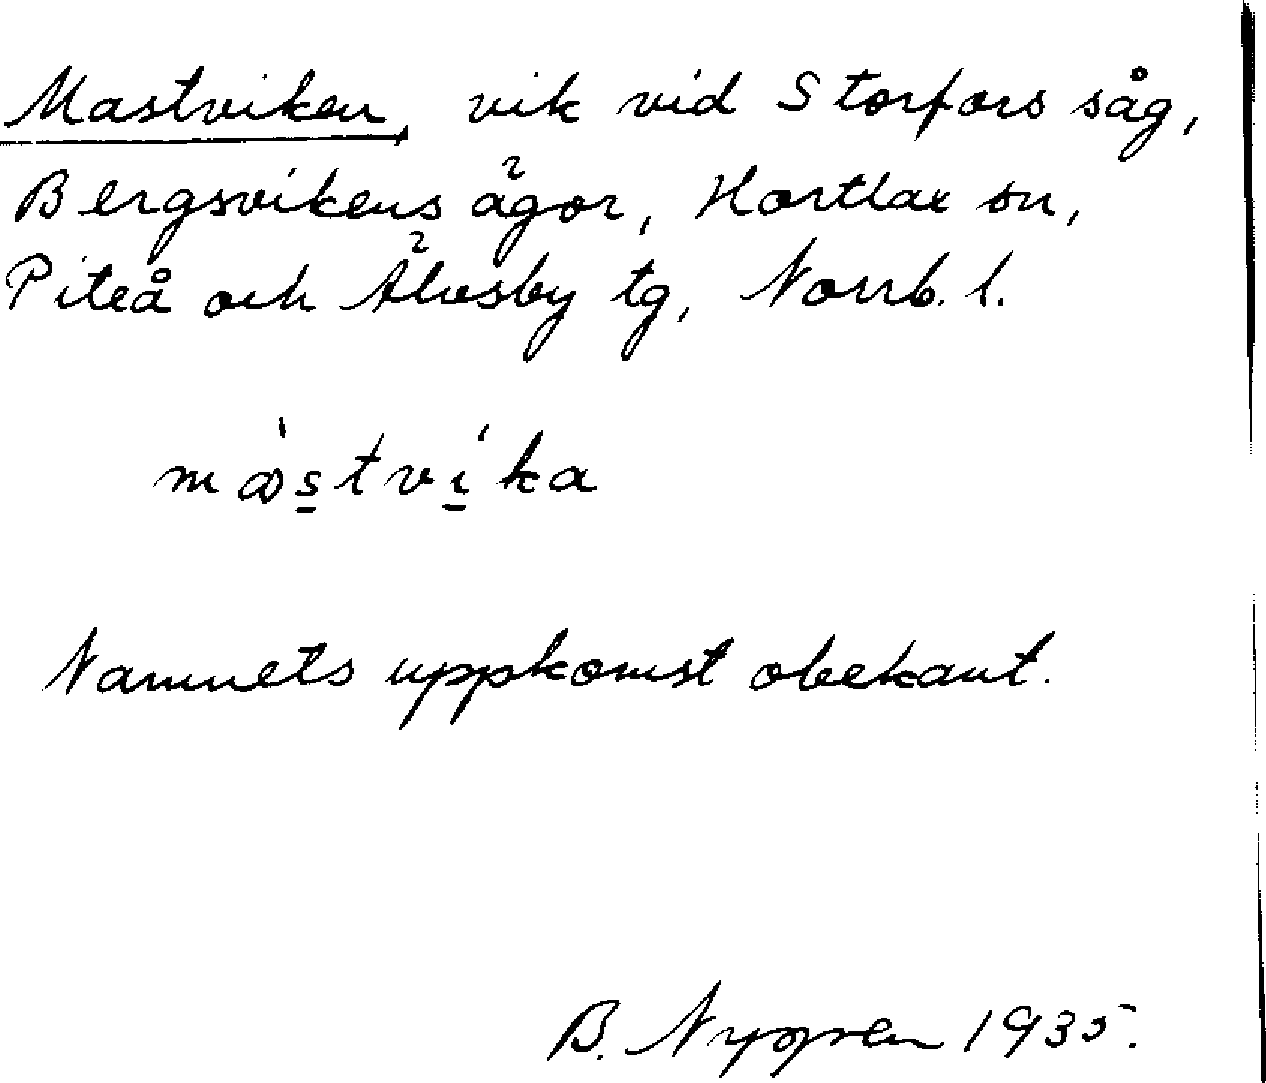 Mastviken, vik vid Storfors såg,
Bergsvikens ägor, Hortlax sn,
Piteå och Älvsby tg, Norrb. l.
mástvíka
Namnets uppkomst obekant.
B. Nygren 1935.